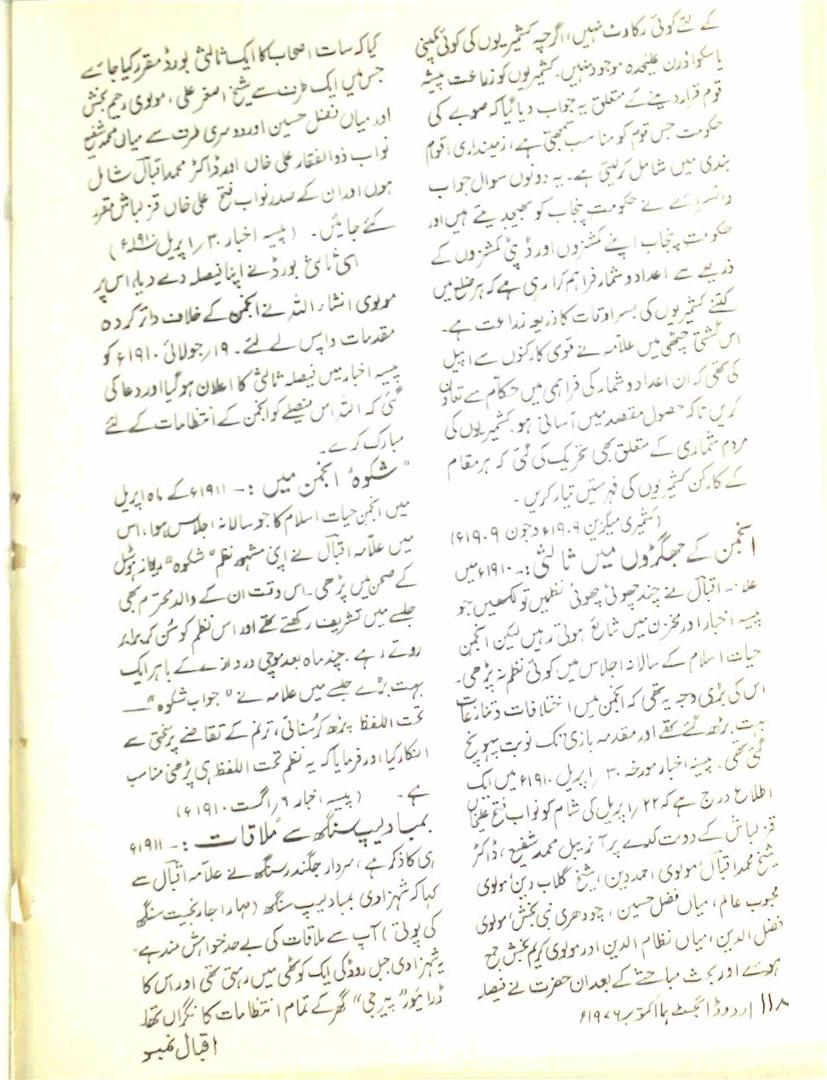 کے لئے کوئی رکاوٹ نہیں، اگرچہ کشمیریوں کی کوئی کمپنی
یا سکواڈرن علیٰحدہ موجود نہیں۔ کشمیریوں کو زراعت پیشہ
قوم قرار دینے کے متعلق یہ جواب دیا گیا کہ صوبے کی
حکومت جس قوم کو مناسب سمجھتی ہے، زمینداری اقوام
بندی میں شامل کر لیتی ہے۔ یہ دونوں سوال جواب
وائسرائے نے حکومت پنجاب کو بھیج دیئے ہیں اور
حکومت پنجاب اپنے کمشنروں اور ڈپٹی کمشنروں کے
ذریعے سے اعداد و شمار فراہم کرا رہی ہے کہ ہر ضلع میں
کتنے کشمیریوں کی بسر اوقات کا ذریعہ زراعت ہے۔
اس گشتی چٹھی میں علامہ نے قومی کارکنوں سے اپیل
کی تھی کہ ان اعداد و شمار کی فراہمی میں حکام سے تعاون
کریں تاکہ حصول مقصد میں آسانی ہو۔ کشمیریوں کی
مردم شماری کے متعلق بھی تحریک کی گئی کہ ہر مقام
کے کارکن کشمیریوں کی فہرستیں تیار کریں۔
(کشمیری میگزین ۱۹۰۹ء جون ۱۹۰۹ء)
انجمن کے جھگڑوں میں ثالثی :۔ ۱۹۱۰ء میں
علامہ اقبال نے چند چھوٹی چھوٹی نظمیں تو لکھیں جو
پیسہ اخبار اور مخزن میں شائع ہوتی رہیں لیکن انجمن
حمایت اسلام کے سالانہ اجلاس میں کوئی نظم نہ پڑھی۔
اس کی بڑی وجہ یہ تھی کہ انجمن میں اختلافات و تنازعات
بہت بڑھ گئے تھے اور مقدمہ بازی تک نوبت پہونچ
گئی تھی۔ پیسہ اخبار مورخہ ۳۰/اپریل ۱۹۱۰ء میں ایک
اطلاع درج ہے کہ ۲۲/اپریل کی شام کو نواب فتح علیخاں
قزلباش کے دولت کدے پر آنریبل محمد شفیع، ڈاکٹر
شیخ محمد اقبال، مولوی احمد دین، شیخ گلاب دین، مولوی
محبوب عالم، میاں فضل حسین، چودھری نبی بخش، مولوی
فضل الدین، میاں نظام الدین اور مولوی کریم بخش جمع
ہوئے اور بحث مباحثے کے بعد ان حضرت نے فیصلہ
کیا کہ سات اصحاب کا ایک ثالثی بورڈ مقرر کیا جائے
جس میں ایک طرف سے شیخ اصغر علی، مولوی رحیم بخش
اور میاں فضل حسین اور دوسری طرف سے میاں محمد شفیع
نواب ذوالفقار علی خاں اور ڈاکٹر محمد اقبال شامل
ہوں اور ان کے صدر نواب فتح علی خاں قزلباش مقرر
کئے جائیں۔ (پیسہ اخبار ۳۰/اپریل ۱۹۱۰ء)
اسی ثالثی بورڈ نے اپنا فیصلہ دے دیا، اس پر
مولوی انشاء اللہ نے انجمن کے خلاف دائر کردہ
مقدمات واپس لے لئے۔ ۱۹/جولائی ۱۹۱۰ء کو
پیسہ اخبار میں فیصلہ ثالثی کا اعلان ہو گیا اور دعا کی
گئی کہ اللہ اس فیصلے کو انجمن کے انتظامات کے لئے
مبارک کرے۔
"شکوہ" انجمن میں :۔ ۱۹۱۱ء کے ماہ اپریل
میں انجمن حمایت اسلام کا جو سالانہ اجلاس ہوا، اس
میں علامہ اقبال نے اپنی مشہور نظم "شکوہ" ریواز ہوسٹل
کے صحن میں پڑھی۔ اس وقت ان کے والد محترم بھی
جلسے میں تشریف رکھتے تھے اور اس نظم کو سُن کر برابر
روتے رہے۔ چند ماہ بعد موچی دروازے کے باہر ایک
بہت بڑے جلسے میں علامہ نے "جواب شکوہ" —
تحت اللفظ پڑھ کر سُنائی، ترنم کے تقاضے پر سختی سے
انکار کیا اور فرمایا کہ یہ نظم تحت اللفظ ہی پڑھنی مناسب
ہے۔ (پیسہ اخبار ۶/اگست ۱۹۱۰ء)
بمبا دیپ سنگھ سے ملاقات :۔ ۱۹۱۱ء
ہی کا ذکر ہے، سردار جگندر سنگھ نے علامہ اقبال سے
کہا کہ شہزادی بمبا دیپ سنگھ (مہاراجا رنجیت سنگھ
کی پوتی) آپ سے ملاقات کی بے حد خواہش مند ہے۔
یہ شہزادی جیل روڈ کی ایک کوٹھی میں رہتی تھی اور اس کا
ڈرائیور "پیر جی" گھر کے تمام انتظامات کا نگراں تھا۔
۱۱۸ اردو ڈائجسٹ ہما اکتوبر ۱۹۷۶ء
اقبال نمبر